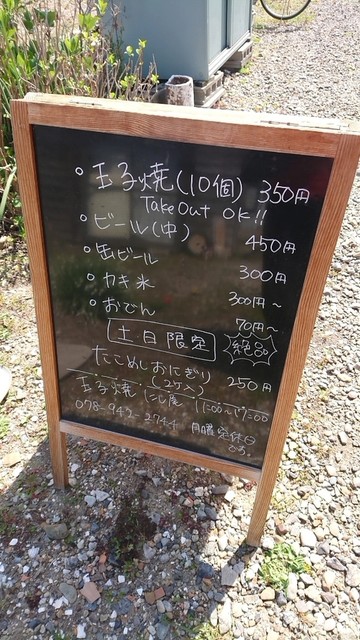 ○玉子焼(10個) 350円
Take Out OK!!
○ビール(中) 450円
○缶ビール 300円
○カキ氷 300円~
○おでん 70円~
土・日限定 絶品
たこめしおにぎり
(2ケ入) 250円
玉子焼 11:00~17:00
078-942-2744 月曜定休日
です。